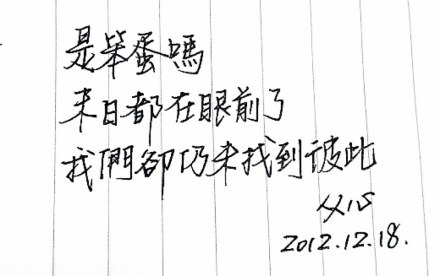 是笨蛋嗎
末日都在眼前了
我們卻仍未找到彼此
2012.12.18.